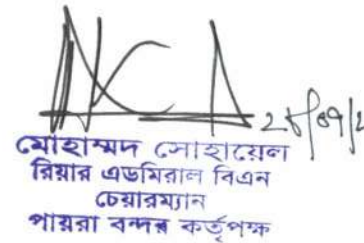 মোহাম্মদ সোহায়েল
রিয়ার এডমিরাল বিএন
চেয়ারম্যান
পায়রা বন্দর কর্তৃপক্ষ